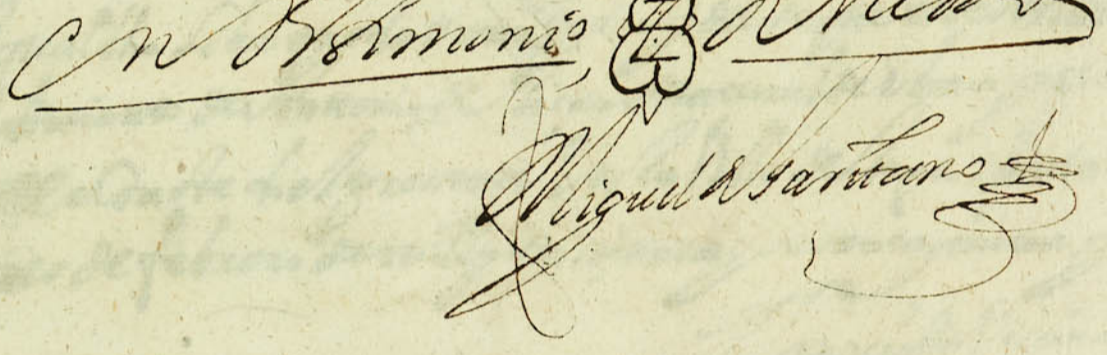 en testimonio de Verdad
Miguel de Santano